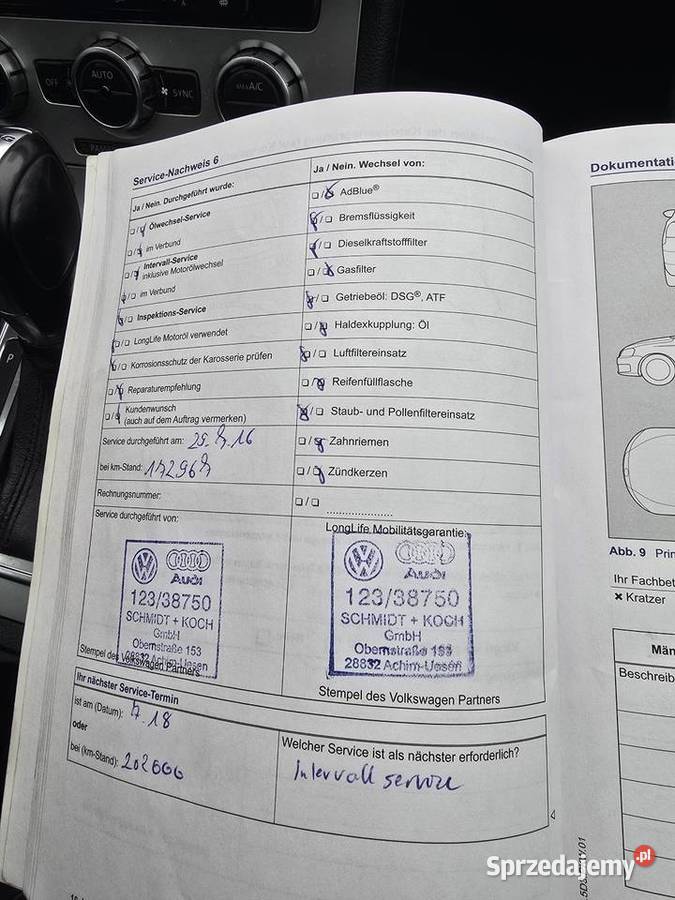 OFF
AUTO
SYNC
MAX A/C
P
Service-Nachweis 6
Ja / Nein. Durchgeführt wurde:
Ölwechsel-Service
im Verbund
Intervall-Service
inklusive Motorölwechsel
im Verbund
Inspektions-Service
LongLife Motoröl verwendet
Korrosionsschutz der Karosserie prüfen
Reparaturempfehlung
Kundenwunsch
(auch auf dem Auftrag vermerken)
Service durchgeführt am:
bei km-Stand:
Rechnungsnummer:
Service durchgeführt von:
Audi
123/38750
SCHMIDT + KOCH
GmbH
Obernstraße 153
28832 Achim-Uesen
Stempel des Volkswagen Partners
Ja / Nein. Wechsel von:
AdBlue®
Bremsflüssigkeit
Dieselkraftstofffilter
Gasfilter
Getriebeöl: DSG®, ATF
Haldexkupplung: Öl
Luftfiltereinsatz
Reifenfüllflasche
Staub- und Pollenfiltereinsatz
Zahnriemen
Zündkerzen
LongLife Mobilitätsgarantie:
Audi
123/38750
SCHMIDT + KOCH
GmbH
Obernstraße 153
28832 Achim-Uesen
Stempel des Volkswagen Partners
Ihr nächster Service-Termin
ist am (Datum): 7.18
oder
bei (km-Stand): 202000
Welcher Service ist als nächster erforderlich?
Intervall service
Dokumentati
Abb. 9 Prin
Ihr Fachbet
✖ Kratzer
Män
Beschreib
Sprzedajemy.pl